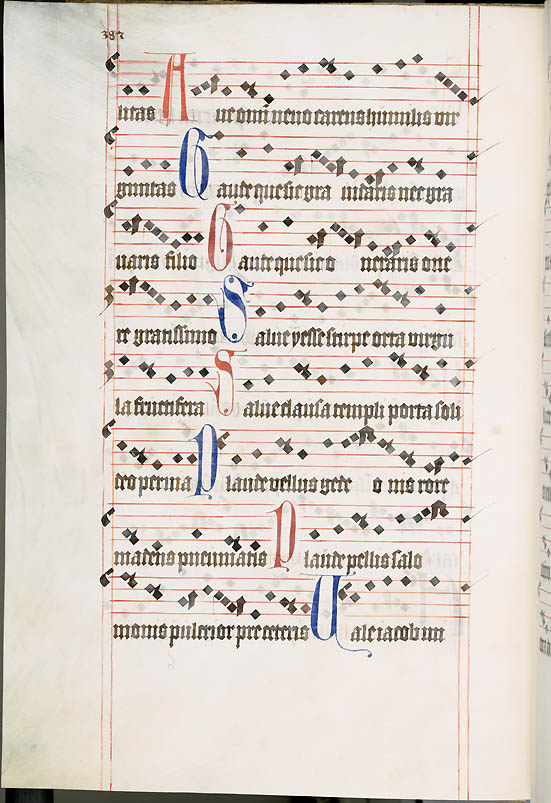 387
litas Aue omni neuo carens humilis vir
ginitas Gaude que sic gra uidaris nec gra
uaris filio Gaude que sic o neraris one
re gratissimo Salue yesse stirpe orta virgu
la fructifera Salue clausa templi porta soli
deo peruia Plaude vellus gede o nis rore
madens pneumatis Plaude pellis salo
monis pulcrior pre ceteris Uale iacob in